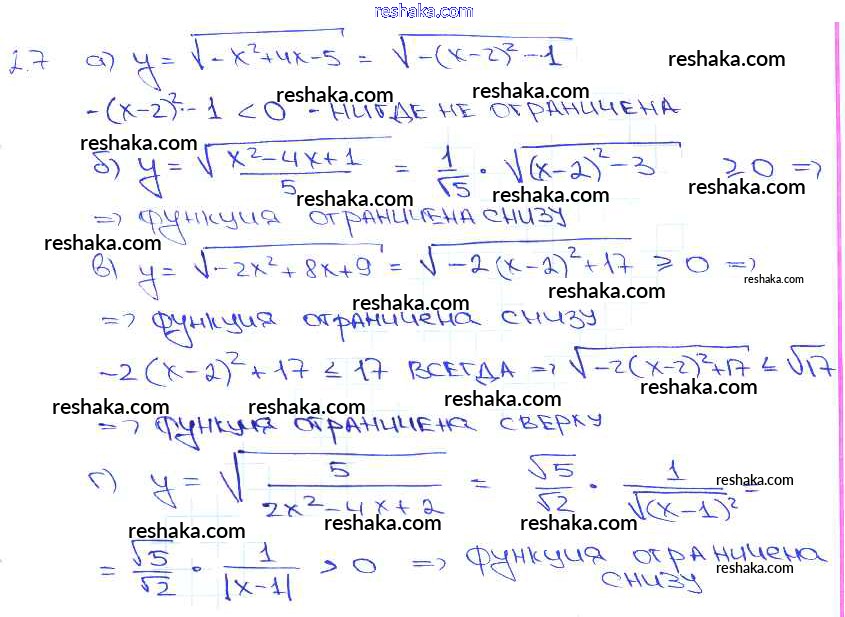 reshaka.com
2.7 а) y = √(-x²+4x-5) = √(-(x-2)²-1) reshaka.com
reshaka.com reshaka.com
-(x-2)²-1 < 0 - НИГДЕ НЕ ОГРАНИЧЕНА
reshaka.com reshaka.com reshaka.com
б) y = √((x²-4x+1)/5) = 1/√5 · √((x-2)²-3) ≥ 0 =>
reshaka.com reshaka.com reshaka.com
=> ФУНКЦИЯ ОГРАНИЧЕНА СНИЗУ
reshaka.com
в) y = √(-2x²+8x+9) = √(-2(x-2)²+17) ≥ 0 =>
reshaka.com reshaka.com reshaka.com
=> ФУНКЦИЯ ОГРАНИЧЕНА СНИЗУ
reshaka.com reshaka.com
-2(x-2)²+17 ≤ 17 ВСЕГДА => √(-2(x-2)²+17) ≤ √17
reshaka.com reshaka.com reshaka.com reshaka.com
=> ФУНКЦИЯ ОГРАНИЧЕНА СВЕРХУ
г) y = √(5/(2x²-4x+2)) = √5/√2 · 1/√(x-1)² =
reshaka.com
reshaka.com reshaka.com reshaka.com
= √5/√2 · 1/|x-1| > 0 => ФУНКЦИЯ ОГРАНИЧЕНА
СНИЗУ
reshaka.com